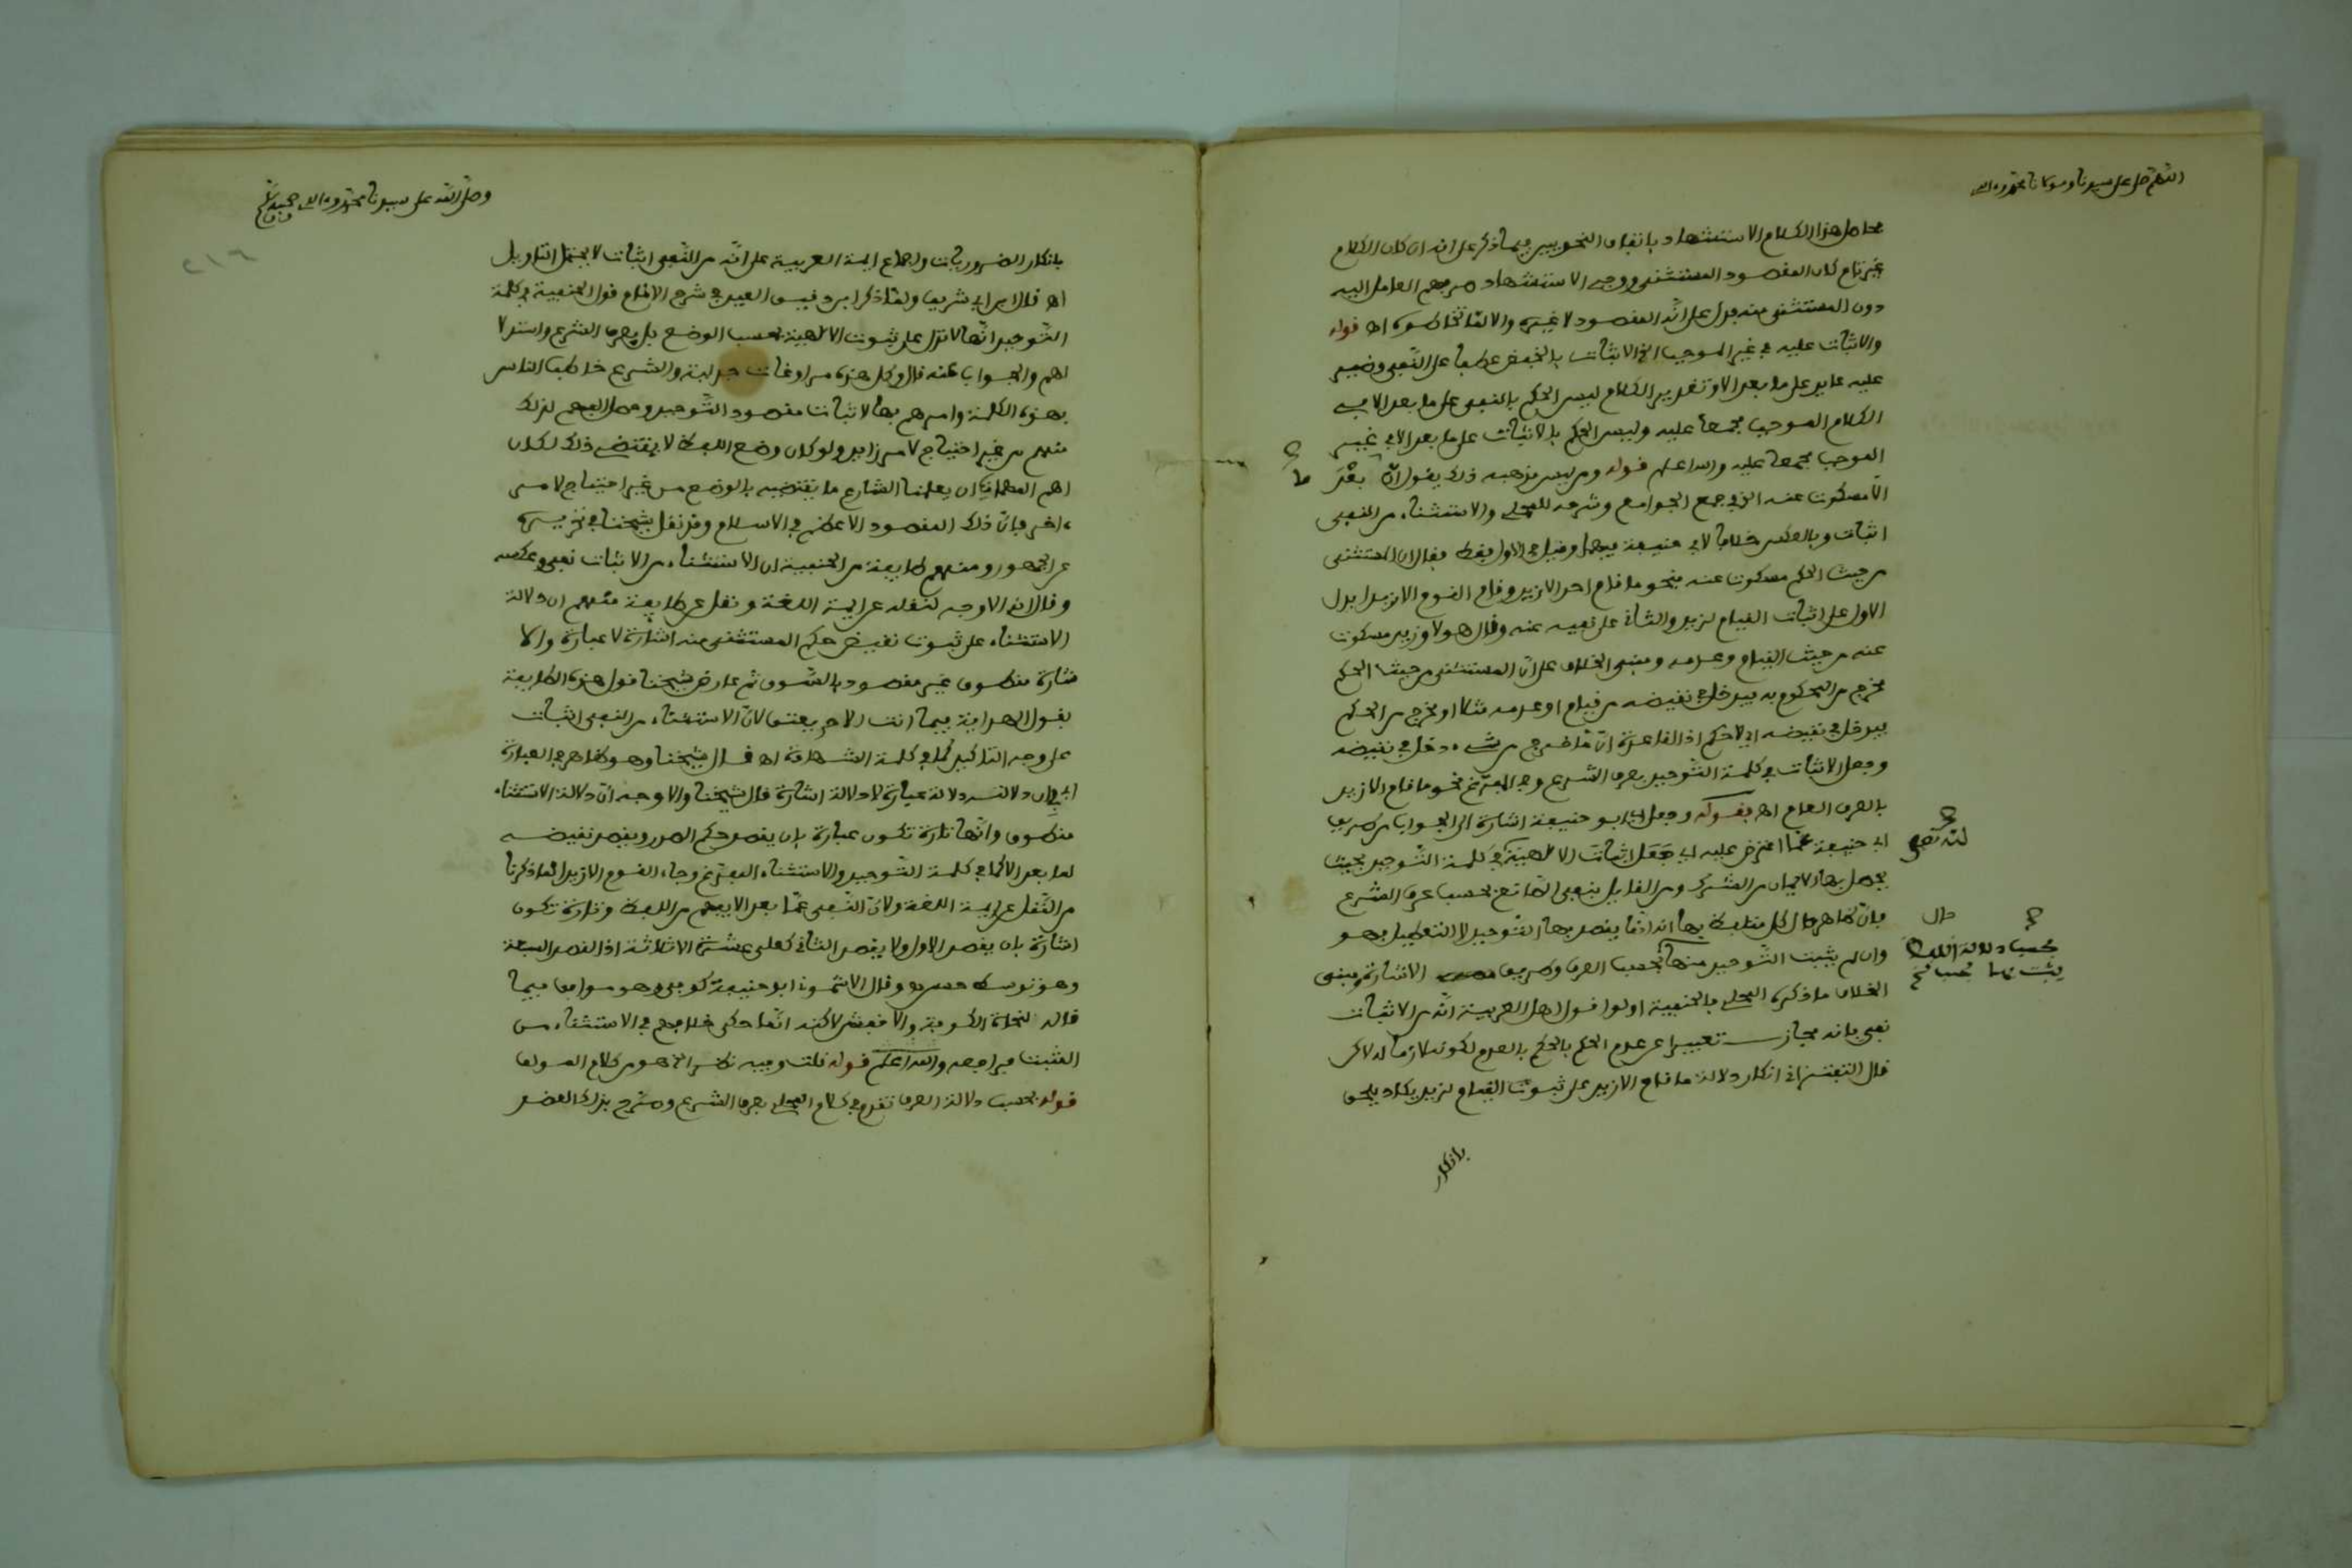 اللهم صل على سيدنا ومولانا محمد وءاله
محامل هذا الكلام الاستشهاد باتفاق النحويين فيما ذكر على انه ان كان الكلام
غير تام كان المقصود المستثنى ووجه الاستشهاد صرفهم العامل اليه
دون المستثنى منه يدل على انه المقصود لا غيره والا لما تخاطوه اه قوله
والاثبات عليه في غير الموجب الخ الاثبات بالخفض عطفا على النفي وضمير
عليه عايد على ما بعد الا وتقدير الكلام ليس الحكم بالنفي على ما بعد الا في
الكلام الموجب مجمعا عليه وليس الحكم بالاثبات على ما بعد الا في غير
الموجب مجمعا عليه والله اعلم قوله ومن ليس مذهبه ذلك يقول ان بعد
الا مسكوت عنه الخ في جمع الجوامع وشرحه للمحلي والاستثناء من النفي
اثبات وبالعكس خلافا لابي حنيفة فيهما وقيل في الاول فقط فقال ان المستثنى
من حيث الحكم مسكوت عنه فنحو ما قام احد الا زيد وقام القوم الا زيدا يدل
الاول على اثبات القيام لزيد والثاني على نفيه عنه وقال هو لا وزيد مسكوت
عنه من حيث القيام وعدمه ومبنى الخلاف على ان المستثنى من حيث الحكم
مخرج من المحكوم به فيدخل في نقيضه من قيام او عدمه مثلا او مخرج من الحكم
فيدخل في نقيضه اي لا حكم اذ القاعدة ان ما خرج من شيء دخل في نقيضه
وجعل الاثبات في كلمة التوحيد بعرف الشرع وفي المفرغ نحو ما قام الا زيد
بالعرف العام اه فقوله وجعل ابو حنيفة اشارة الى الجواب من طريق
ابي حنيفة عما اعترض عليه اي جعل اثبات الالهية في كلمة التوحيد بحيث
يحصل بها الايمان من المشرك ومن القايل بنفي الصانع بحسب عرف الشرع
فان ظاهر حال كل متلفظ بها انه انما يقصد بها التوحيد لا التعطيل فهو
وان لم يثبت التوحيد منها بحسب العرف وطريق الاشارة ومبنى
الخلاف ما ذكره المحلي فالحنفية اولوا قول اهل العربية انه من الاثبات
نفي بانه مجاز تعبيرا عن عدم الحكم بالحكم بالعدم لكونه لازما له لاكن
قال التفتزاني انكار دلالة ما قام الا زيد على ثبوت القيام لزيد يكاد يلحق
بانكار
لله تعلى
حال
بحسب دلالة اللفظ
وصلى الله على سيدنا محمد وءاله وصحبه وسلم
٢١٦
بانكار الضروريات واجماع ايمة العربية على انه من النفي اثبات لا يحتمل التاويل
اه قال ابن ابي شريف ولما ذكر ابن دقيق العيد في شرح الالمام قول الحنفية في كلمة
التوحيد انها لا تدل على ثبوت الالهية بحسب الوضع بل بعرف الشرع واستدلا
لهم والجواب عنه قال وكل هذه مراوغات جدلية والشرع خاطب الناس
بهذه الكلمة وامرهم بها لاثبات مقصود التوحيد وحصل الفهم لذلك
منهم من غير احتياج لامر زايد ولو كان وضع اللفظ لا يقتضي ذلك لكان
اهم المهمات ان يعلمنا الشارع ما يقتضيه بالوضع من غير احتياج لامر
ءاخر فان ذلك المقصود الاعظم في الاسلام وقد نقل شيخنا في تحريره
عن الجمهور ومنهم طايفة من الحنفية ان الاستثناء من الاثبات نفي وعكسه
وقال انه الاوجه لنقله عن ايمة اللغة ونقل عن طايفة منهم ان دلالة
الاستثناء على ثبوت نقيض حكم المستثنى منه اشارة لا عبارة والا
شارة منطوق غير مقصود بالسوق ثم عارض شيخنا قول هذه الطايفة
بقول الهداية فيما انت الا حر يعتق لان الاستثناء من النفي اثبات
على وجه التاكيد كما في كلمة الشهادة اه قال شيخنا وهو ظاهر في العبارة
اي في ان دلالته دلالة عبارة لا دلالة اشارة قال شيخنا والاوجه ان دلالة الاستثناء
منطوق وانها تارة تكون عبارة بان يقصد حكم الصدر ويقصد نقيضه
لما بعد الا كما في كلمة التوحيد والاستثناء المفرغ وجاء القوم الا زيدا لما ذكرنا
من النقل عن ايمة اللغة ولان النفي عما بعد الا يفهم من اللفظ وتارة تكون
اشارة بان يقصد الاول ولا يقصد الثاني كعلي عشرة الا ثلاثة اذ القصد السبعة
وهو توسط حسن وقال الاشموني ابو حنيفة كوفي وهو موافق فيما
قاله لنحاة الكوفة والاخفش لاكنه انما حكى خلافهم في الاستثناء من
المثبت فراجعه والله اعلم قوله قلت وفيه نظر الخ هو من كلام المولف
قوله بحسب دلالة العرف تقدم في كلام المحلي بعرف الشرع وصرح بذلك العضد